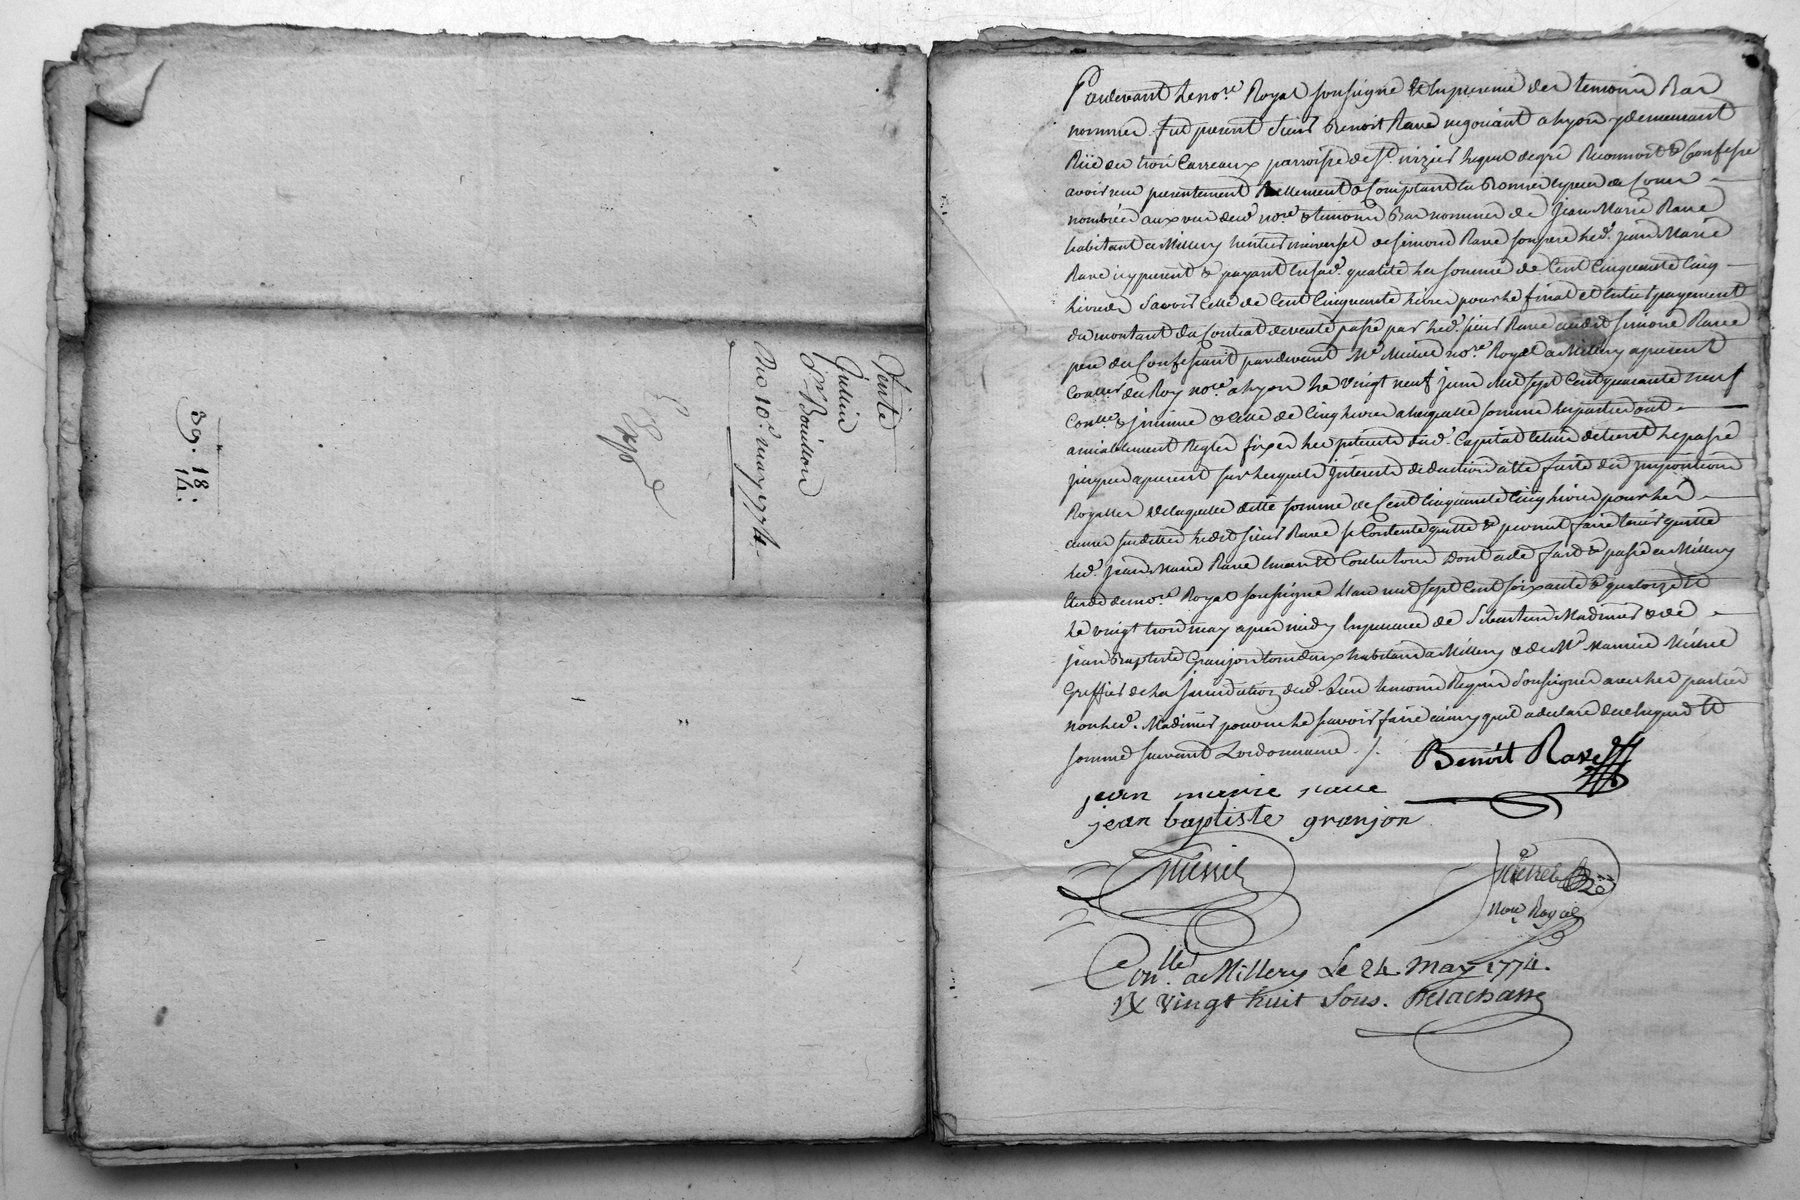 Vente
Gullin
Sr. Bouillon
Du 10e. may 1774
Exp
18:
39. 14.
Pardevant le nore. Royal soussigné et en presence des temoins bas
nommés fut present sieur Benoit Rave negotiant a lyon y demeurant
Rüe des trois Carreaux parroisse de st. nizier lequel de gré Reconnoit & Confesse
avoir reçu presentement Reellement & Comptant en Bonnes especes de Cours
nombrées aux vue dud. nore. & temoins Bas nommés de Jean Marie Rave
habitant a Millery heritier universel de simond Rave son pere led. jean Marie
Rave icy present & payant en sad. qualité la somme de Cent Cinquante Cinq
livres Savoir Celle de Cent Cinquante livres pour le final et entier payement
du montant du Contrat de vente passé par led. sieur Rave audit simond Rave
pere du Confessant pardevant Me. nore. Royal a Millery a present
Coner. du Roy nore. a lyon le vingt neuf juin mil sept Cent quarante neuf
Conllé. & insinué & Celle de Cinq livres a laquelle somme les parties ont
amiablement Reglés fixés les interets dud. Capital de tout le passé
jusques a present sur lesquels Interets deduction a été faite des impositions
Royalles de laquelle ditte somme de Cent Cinquante Cinq livres pour les
causes susdittes ledit sieur Rave se Contente quitte & promet faire tenir quitte
led. jean Marie Rave envers & Contre tous Dont acte fait & passé a Millery
Etude de nore. Royal soussigné L'an mil sept Cent soixante & quatorze et
le vingt trois may apres midy en presence de Sebastien Madinier & de
jean Baptiste Granjon tous deux habitans a Millery & de Me.
Greffier de la jurisdiction dud. Lieu temoins Requis & soussignés avec les parties
non led. Madinier pour ne le savoir faire ainsy qu'il a declaré de ce enquis et
sommé suivant L'ordonnance ./.
Benoit Rave
jean marie rave
jean baptiste granjon
nore. Royal
Conllé. a Millery Le 24 may 1774.
Rx vingt huit sous. Delachasse